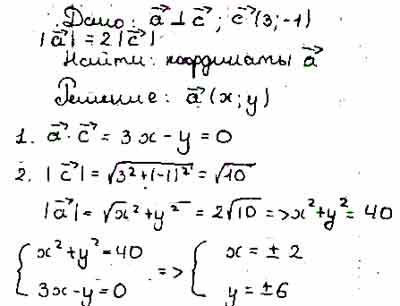 Дано: a⃗ ⊥ c⃗; c⃗ (3; -1)
|a⃗| = 2|c⃗|
Найти: координаты a⃗
Решение: a⃗ (x; y)
1. a⃗ · c⃗ = 3x - y = 0
2. |c⃗| = √(3² + (-1)²) = √10
|a⃗| = √(x² + y²) = 2√10 => x² + y² = 40
{ x² + y² = 40 => { x = ± 2
{ 3x - y = 0 { y = ± 6